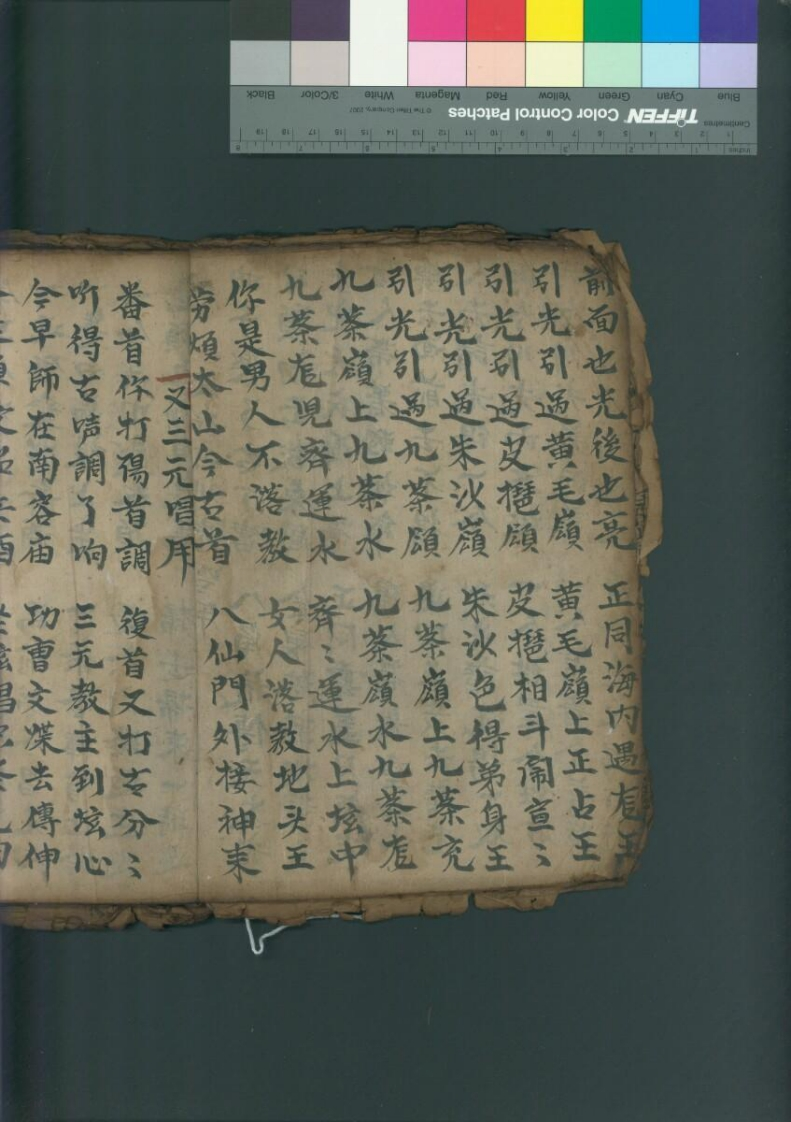 前面也光後也亮 正同海内遇㡪王
引光引過黄毛嶺 黄毛嶺上正占王
引光引過皮𢴈頒 皮𢴈相斗鬧宣〻
引光引過朱沙嶺 朱沙色得弟身王
引光引過九茶頒 九茶嶺上九茶充
九茶嶺上九茶水 九茶嶺水九茶㡪
九茶㡪児齊運水 齊〻運水上垓中
你是男人不落教 女人落教地头王
劳煩太山今古首 八仙門外接神来
又三元唱用
番首你打場首調 復首又打古分〻
听得古唭調了响 三元教主到垓心
今早師在南容庙 功曹文㷸去傳伸
TIFFEN Color Control Patches
© The Tiffen Company, 2007
Centimetres
Inches
Blue Cyan Green Yellow Red Magenta White 3/Color Black